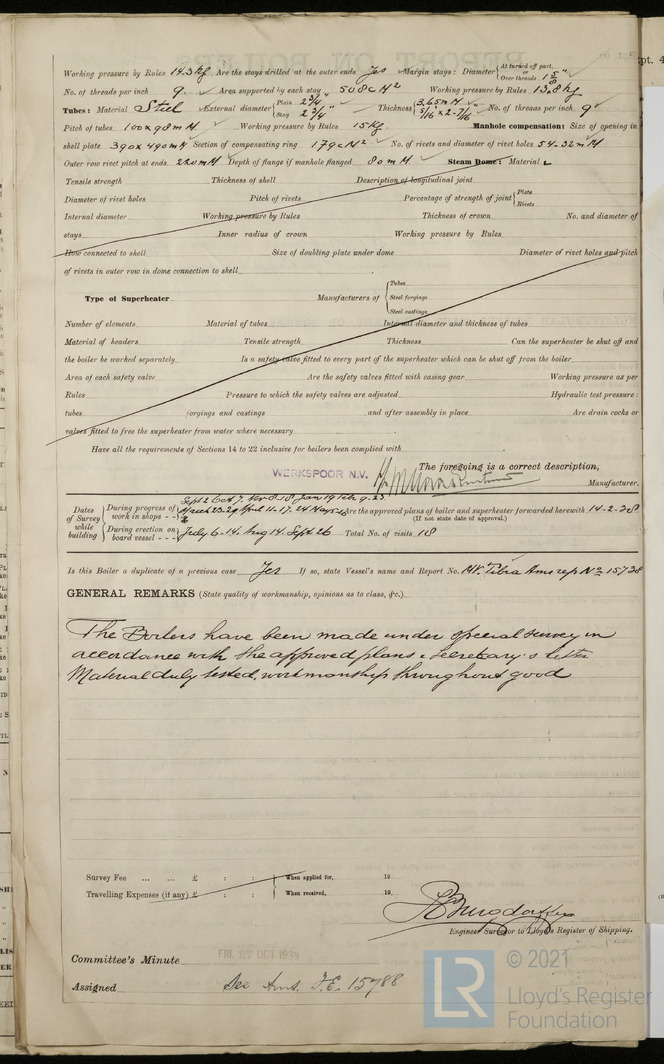 Working pressure by Rules 14.3 kg. Are the stays drilled at the outer ends Yes Margin stays: Diameter { At turned off part, or Over threads 1 5/8"
No. of threads per inch 9. Area supported by each stay 508 cM² Working pressure by Rules 13.8 kg
Tubes: Material Steel External diameter { Plain 2 3/4" Stay 2 3/4" Thickness { 3.65 mM 5/16" x 2-7/16" No. of threads per inch 9
Pitch of tubes 100 x 98 mM Working pressure by Rules 15 kg. Manhole compensation: Size of opening in
shell plate 390 x 490 mM Section of compensating ring 179 cM² No. of rivets and diameter of rivet holes 54-32 mM
Outer row rivet pitch at ends 220 mM Depth of flange if manhole flanged 80 mM Steam Dome: Material
Tensile strength Thickness of shell Description of longitudinal joint
Diameter of rivet holes Pitch of rivets Percentage of strength of joint { Plate Rivets
Internal diameter Working pressure by Rules Thickness of crown No. and diameter of
stays Inner radius of crown Working pressure by Rules
How connected to shell Size of doubling plate under dome Diameter of rivet holes and pitch
of rivets in outer row in dome connection to shell
Type of Superheater Manufacturers of { Tubes Steel forgings Steel castings
Number of elements Material of tubes Internal diameter and thickness of tubes
Material of headers Tensile strength Thickness Can the superheater be shut off and
the boiler be worked separately Is a safety valve fitted to every part of the superheater which can be shut off from the boiler
Area of each safety valve Are the safety valves fitted with easing gear Working pressure as per
Rules Pressure to which the safety valves are adjusted Hydraulic test pressure:
tubes forgings and castings and after assembly in place Are drain cocks or
valves fitted to free the superheater from water where necessary
Have all the requirements of Sections 14 to 22 inclusive for boilers been complied with
The foregoing is a correct description,
WERKSPOOR N.V. Manufacturer.
Dates of Survey while building { During progress of work in shops - - { Sept 2 Oct 7. Nov 8-18 Jan 19 Feb 9-23 March 23-29 April 11-17. 24 May Are the approved plans of boiler and superheater forwarded herewith 14-2-38
(If not state date of approval.)
During erection on board vessel - - - July 6-14. Aug 14. Sept 26 Total No. of visits 18
Is this Boiler a duplicate of a previous case Yes If so, state Vessel's name and Report No. MV. Tibia Ams rep No 15728
GENERAL REMARKS (State quality of workmanship, opinions as to class, &c.)
The Boilers have been made under special survey in
accordance with the approved plans & Secretary's letter
Material duly tested, workmanship throughout good
Survey Fee ... ... £ : : } When applied for, 19
Travelling Expenses (if any) £ : : } When received, 19
Engineer Surveyor to Lloyd's Register of Shipping.
Committee's Minute FRI. 27 OCT 1939
Assigned See Ams. F.E. 15788
LR © 2021
Lloyd's Register
Foundation